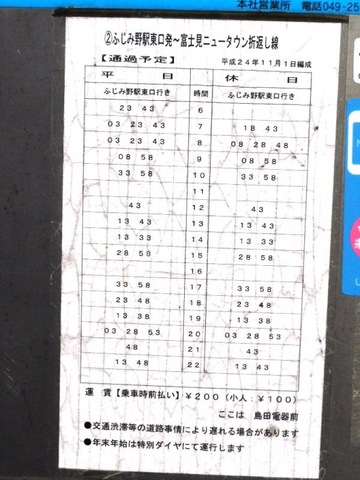 本社営業所　電話049-25
②ふじみ野駅東口発～富士見ニュータウン折返し線
【通過予定】　平成24年11月1日編成
平　日　休　日
ふじみ野駅東口行き　時間　ふじみ野駅東口行き
23 43　6
03 23 43　7　18 43
03 23 43　8　08 28 48
08 58　9　08 58
33 58　10　33 58
11
43　12　43
13 43　13　13 43
13 33　14　13 33
28 58　15　28 58
16
33 58　17　33 58
23 48　18　23 48
13 38　19　13 38
03 28 53　20　03 28 53
48　21　43
13 48　22　13 48
運　賃【乗車時前払い】￥200（小人：￥100）
ここは　島田電器前
●交通渋滞等の道路事情により遅れる場合があります
●年末年始は特別ダイヤにて運行します